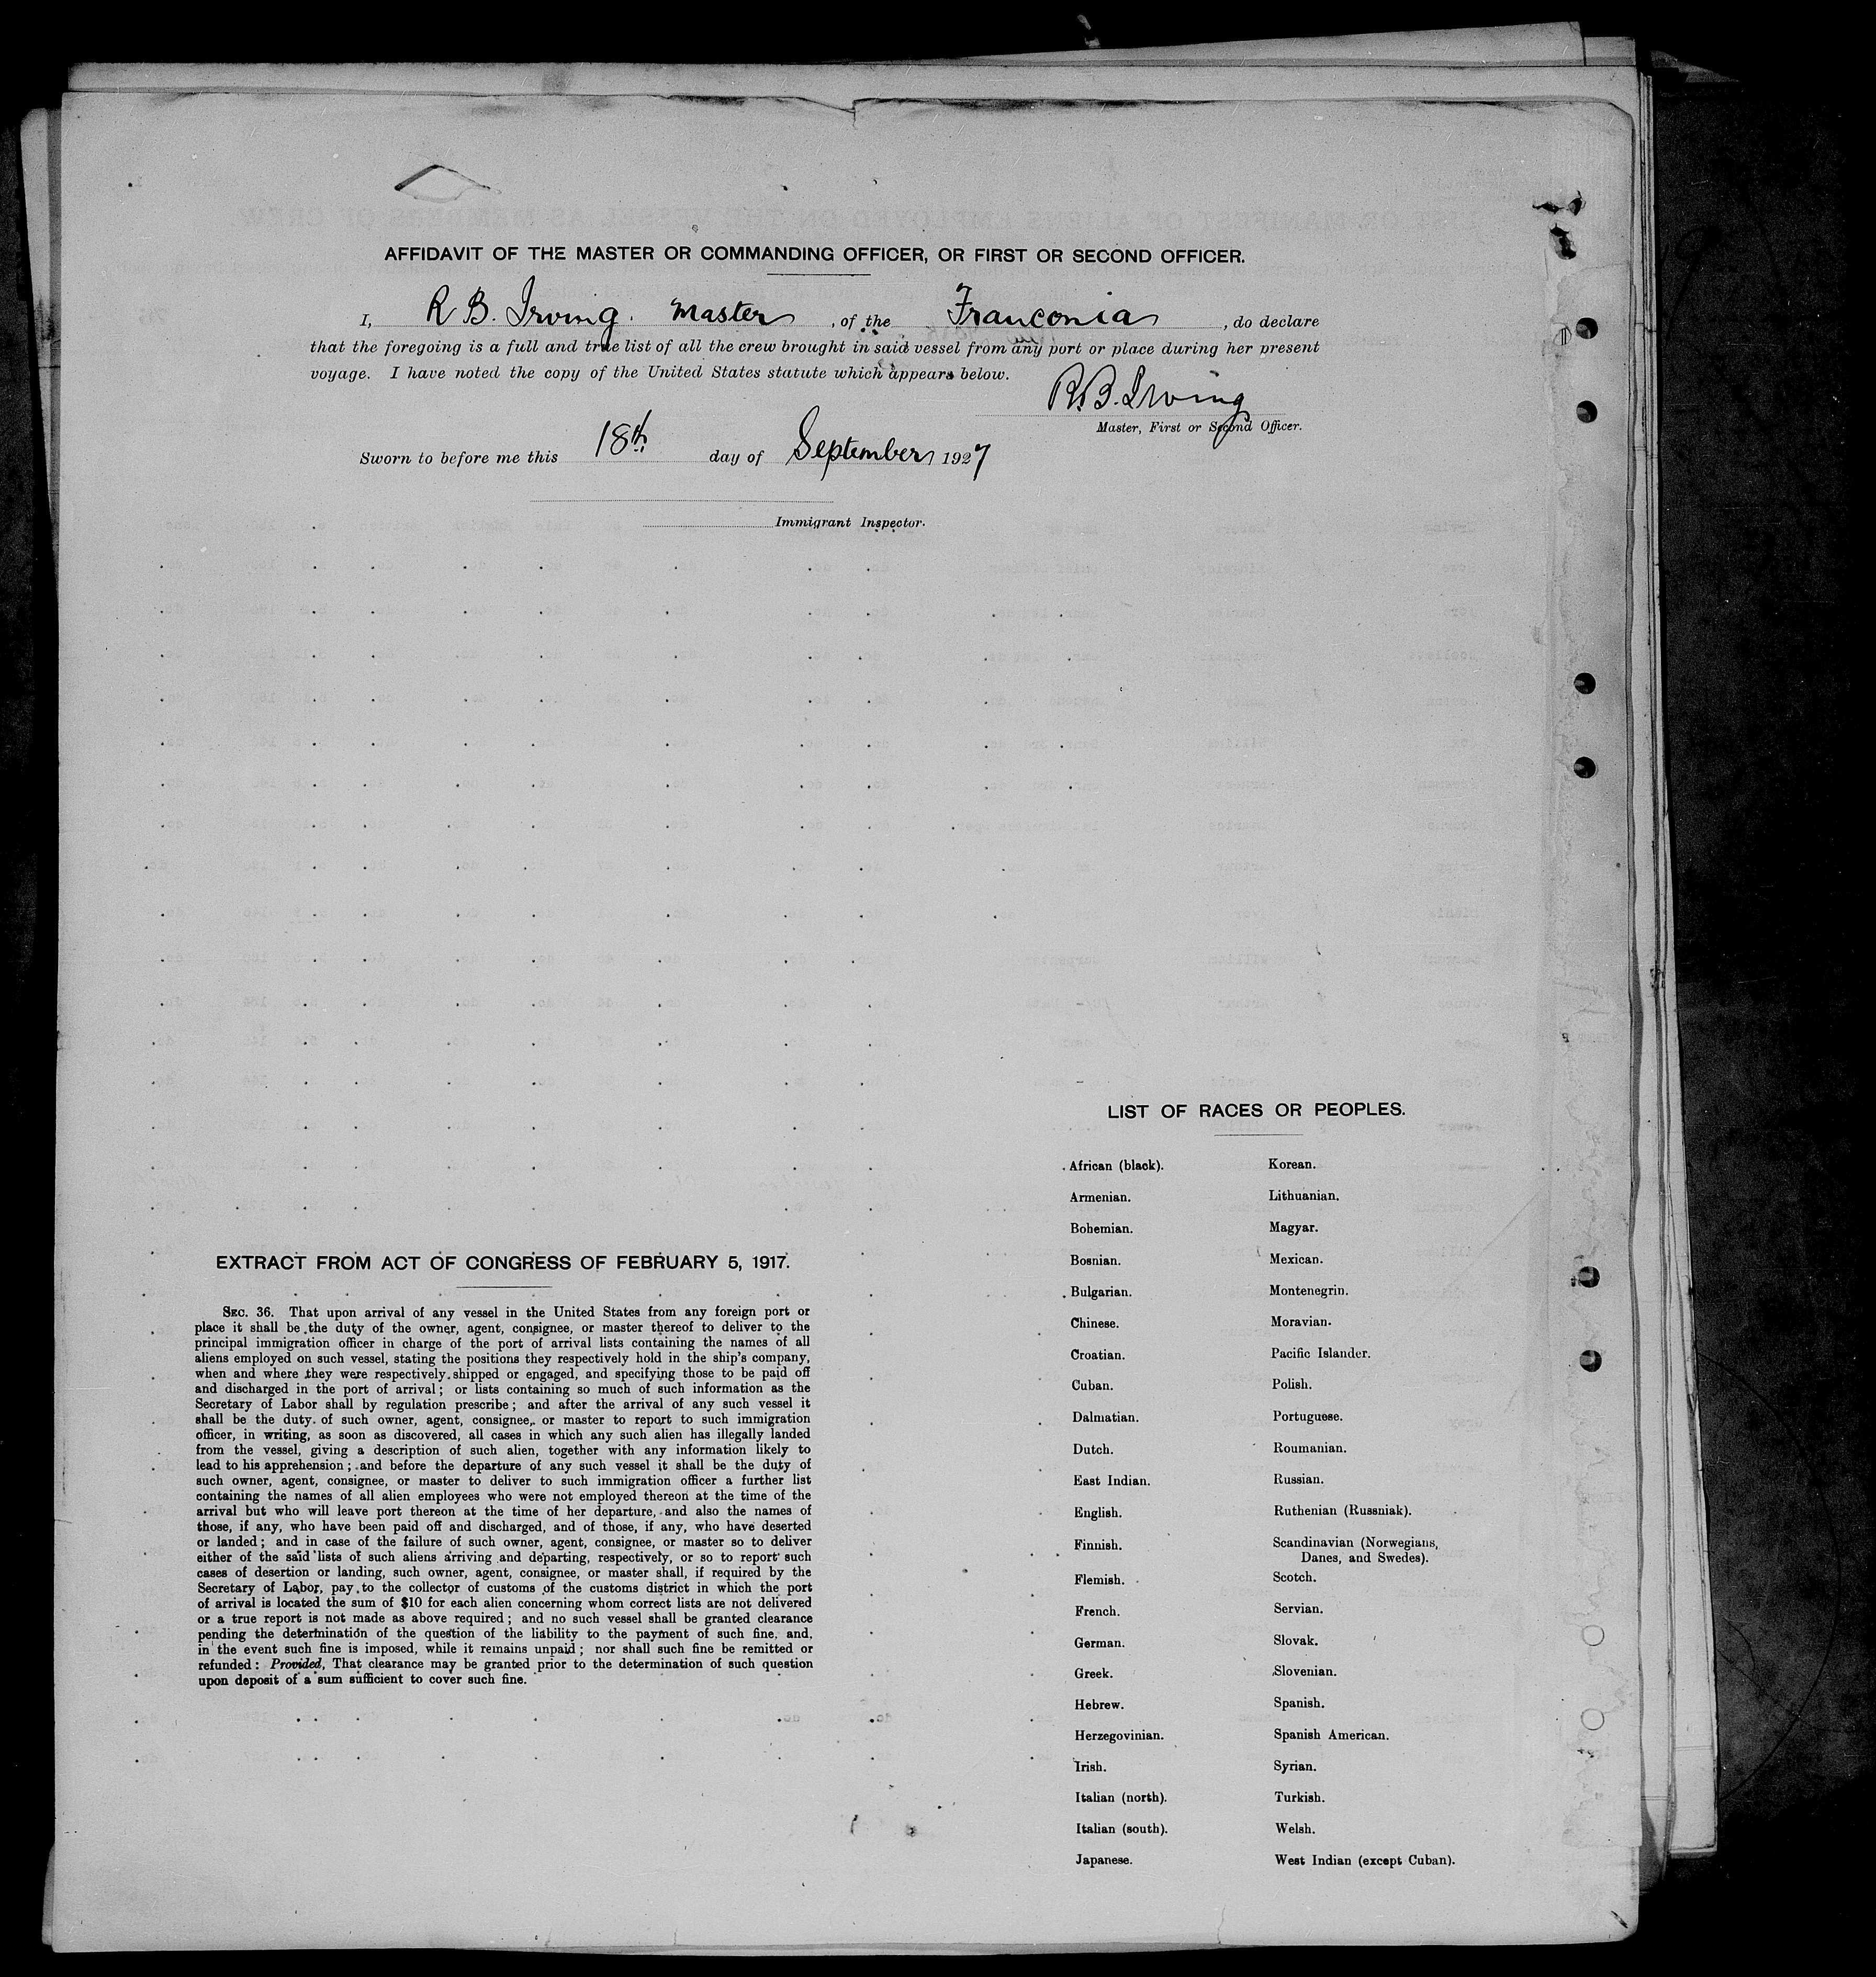 AFFIDAVIT OF THE MASTER OR COMMANDING OFFICER, OR FIRST OR SECOND OFFICER.
I, R B. Irving. Master, of the Franconia, do declare
that the foregoing is a full and true list of all the crew brought in said vessel from any port or place during her present
voyage. I have noted the copy of the United States statute which appears below.
R.B. Irving
Master, First or Second Officer.
Sworn to before me this 18th day of September 1927
Immigrant Inspector.
EXTRACT FROM ACT OF CONGRESS OF FEBRUARY 5, 1917.
SEC. 36. That upon arrival of any vessel in the United States from any foreign port or
place it shall be the duty of the owner, agent, consignee, or master thereof to deliver to the
principal immigration officer in charge of the port of arrival lists containing the names of all
aliens employed on such vessel, stating the positions they respectively hold in the ship's company,
when and where they were respectively shipped or engaged, and specifying those to be paid off
and discharged in the port of arrival; or lists containing so much of such information as the
Secretary of Labor shall by regulation prescribe; and after the arrival of any such vessel it
shall be the duty of such owner, agent, consignee, or master to report to such immigration
officer, in writing, as soon as discovered, all cases in which any such alien has illegally landed
from the vessel, giving a description of such alien, together with any information likely to
lead to his apprehension; and before the departure of any such vessel it shall be the duty of
such owner, agent, consignee, or master to deliver to such immigration officer a further list
containing the names of all alien employees who were not employed thereon at the time of the
arrival but who will leave port thereon at the time of her departure, and also the names of
those, if any, who have been paid off and discharged, and of those, if any, who have deserted
or landed; and in case of the failure of such owner, agent, consignee, or master so to deliver
either of the said lists of such aliens arriving and departing, respectively, or so to report such
cases of desertion or landing, such owner, agent, consignee, or master shall, if required by the
Secretary of Labor, pay to the collector of customs of the customs district in which the port
of arrival is located the sum of $10 for each alien concerning whom correct lists are not delivered
or a true report is not made as above required; and no such vessel shall be granted clearance
pending the determination of the question of the liability to the payment of such fine, and,
in the event such fine is imposed, while it remains unpaid; nor shall such fine be remitted or
refunded: Provided, That clearance may be granted prior to the determination of such question
upon deposit of a sum sufficient to cover such fine.
LIST OF RACES OR PEOPLES.
African (black).
Armenian.
Bohemian.
Bosnian.
Bulgarian.
Chinese.
Croatian.
Cuban.
Dalmatian.
Dutch.
East Indian.
English.
Finnish.
Flemish.
French.
German.
Greek.
Hebrew.
Herzegovinian.
Irish.
Italian (north).
Italian (south).
Japanese.
Korean.
Lithuanian.
Magyar.
Mexican.
Montenegrin.
Moravian.
Pacific Islander.
Polish.
Portuguese.
Roumanian.
Russian.
Ruthenian (Russniak).
Scandinavian (Norwegians,
Danes, and Swedes).
Scotch.
Servian.
Slovak.
Slovenian.
Spanish.
Spanish American.
Syrian.
Turkish.
Welsh.
West Indian (except Cuban).